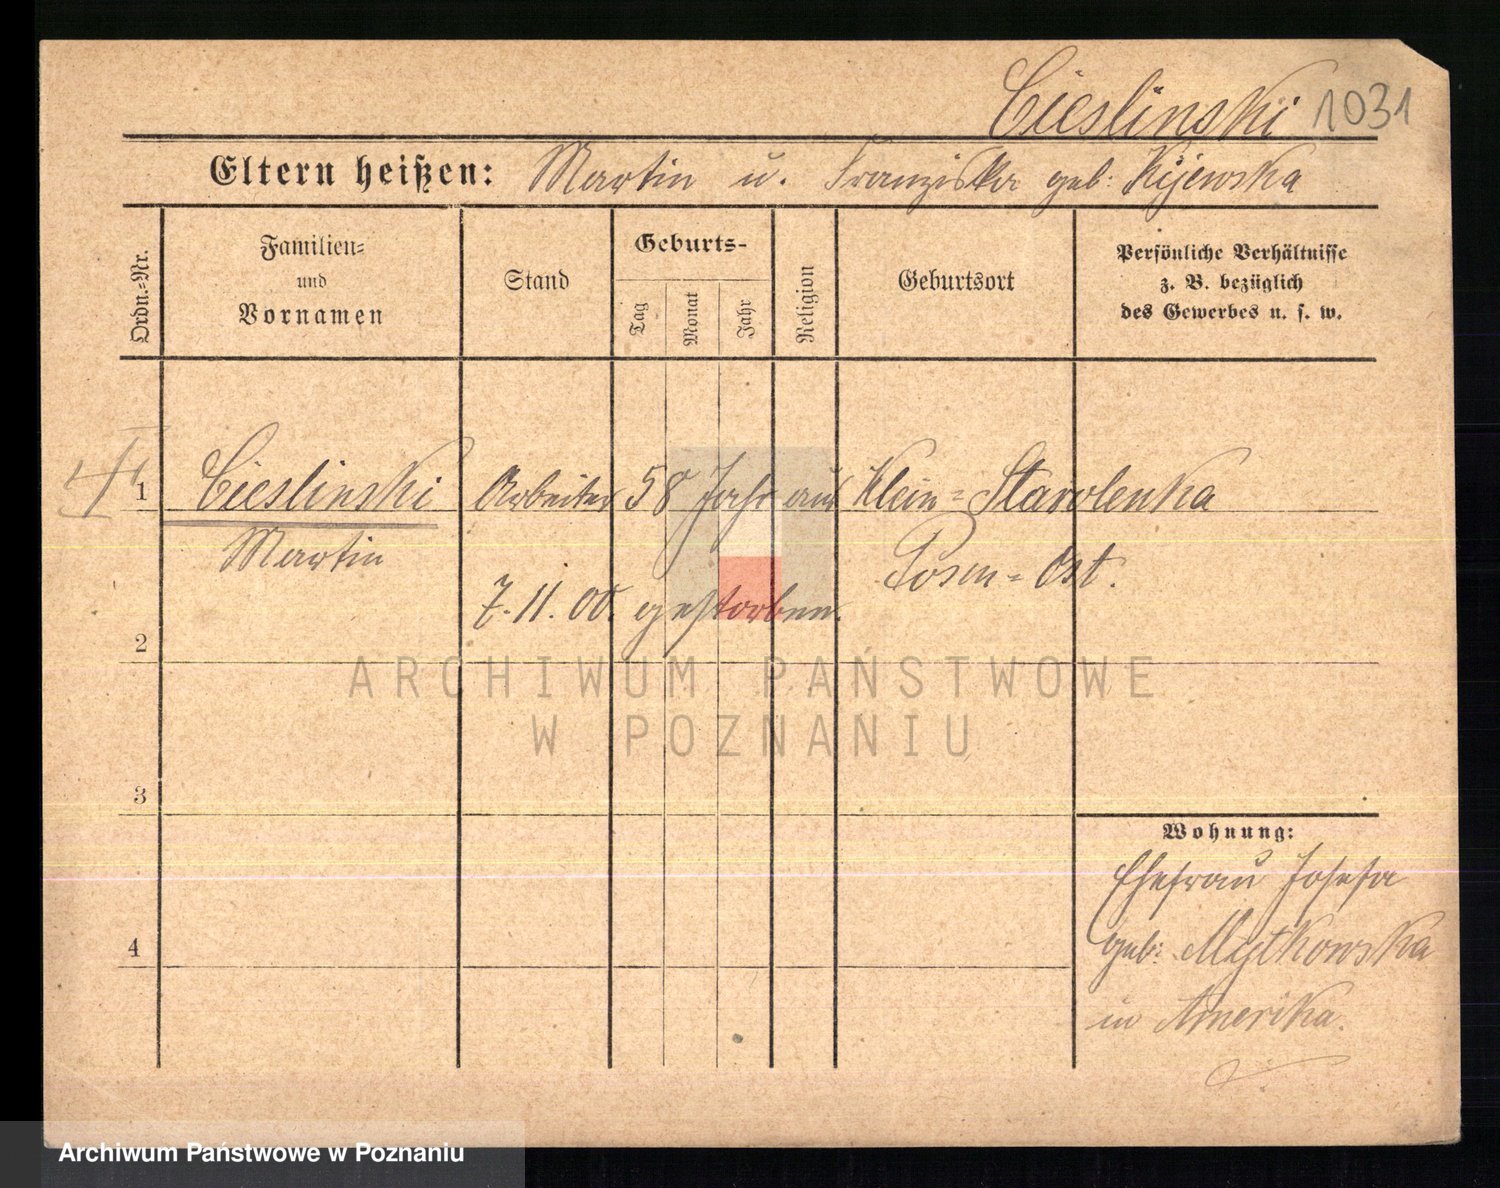 Cieslinski 1031
Eltern heißen: Martin u. Franziska geb: Kijewska
Ordn.-Nr.
Familien-
und
Vornamen
Stand
Geburts-
Tag
Monat
Jahr
Religion
Geburtsort
Persönliche Verhältnisse
z. B. bezüglich
des Gewerbes u. s. w.
1 Cieslinski Arbeiter 58 Jahr aus Klein-Starolenka
Martin Posen-Ost.
7.11.00. gestorben.
2
ARCHIWUM PAŃSTWOWE
W POZNANIU
3
Wohnung:
Ehefrau Josefa
4 geb: Mytkowska
in Amerika.
Archiwum Państwowe w Poznaniu